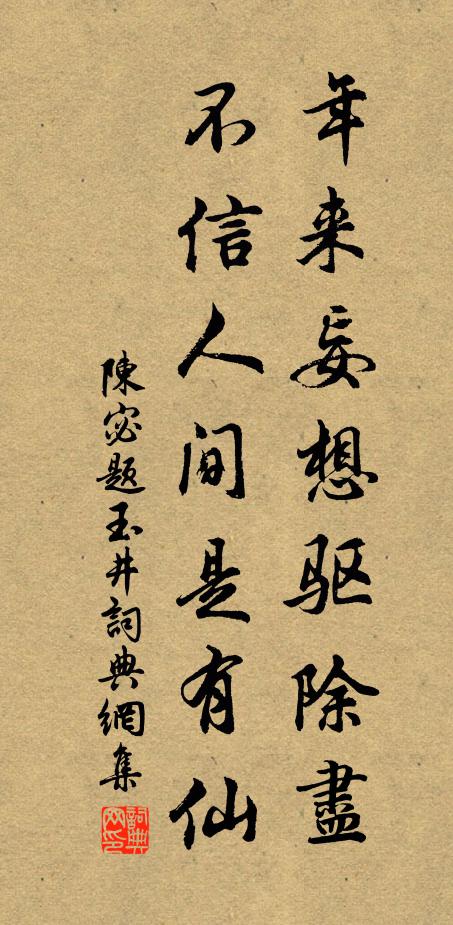 年来妄想驱除盡
不信人间是有仙
陳宓题玉井詞典網集
詞典网印